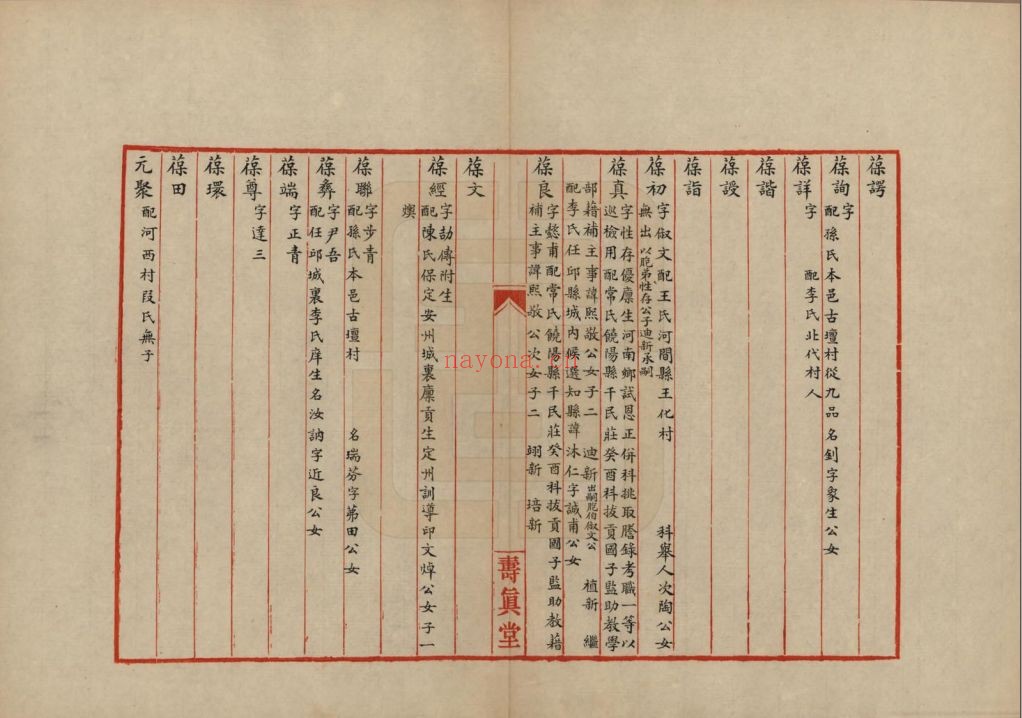 葆諤
葆詢 字
配孫氏本邑古壇村從九品名釗字象生公女
葆詳 字
配李氏北代村人
葆諧
葆設
葆詣
葆初 字俶文配王氏河間縣王化村 科舉人次陶公女
無出以胞弟性存公子迪新承嗣
葆真 字性存優廩生河南鄉試恩正併科挑取謄錄考職一等以
巡檢用配常氏饒陽縣千民莊癸酉科拔貢國子監助教學
部籍補主事諱熙敬公女子二 迪新出嗣胞伯俶文公 植新 繼
配李氏任邱縣城內候選知縣諱沐仁字誠甫公女
葆良 字懿甫配常氏饒陽縣千民莊癸酉科拔貢國子監助教籍
補主事諱熙敬公次女子二 翊新 培新
壽真堂
葆文
葆經 字劼傳附生
配陳氏保定安州城裏廪貢生定州訓導印文焯公女子一
燠
葆聯 字步青
配孫氏本邑古壇村 名瑞芬字苐田公女
葆彝 字尹吾
配任邱城裏李氏庠生名汝訥字近良公女
葆端 字正青
葆尊 字達三
葆環
葆田
元聚 配河西村段氏無子
nayona.cn